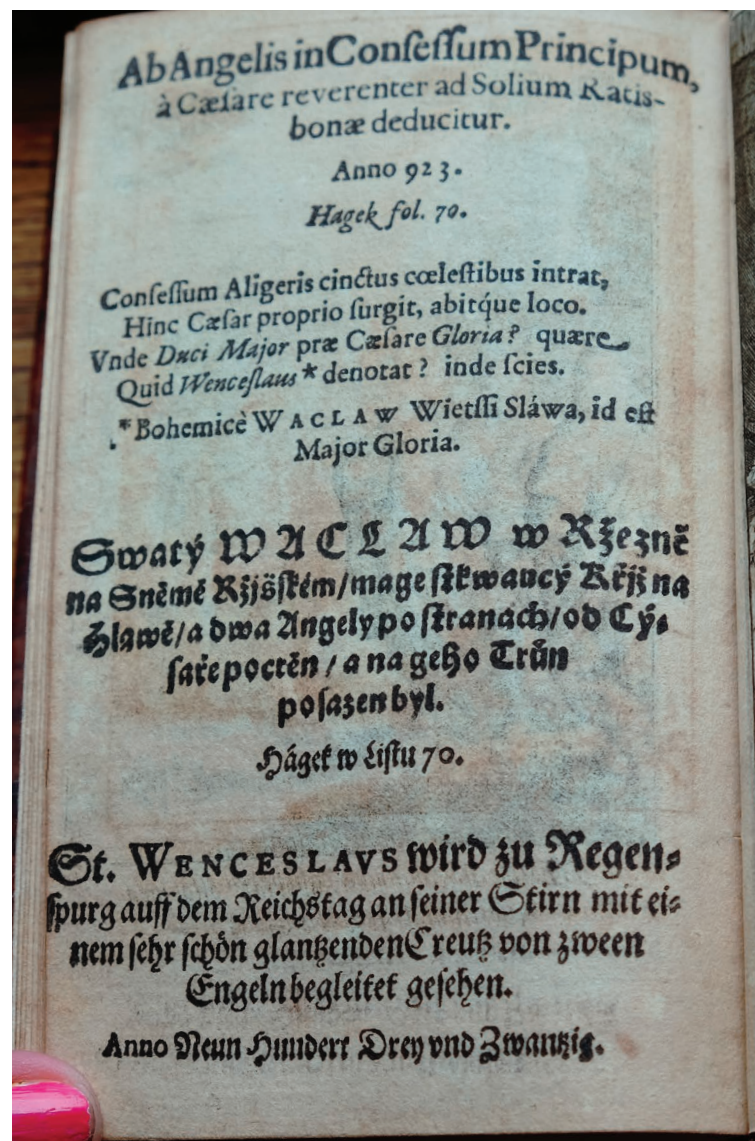 Ab Angelis in Conſeſſum Principum,
à Cæſare reverenter ad Solium Ratis-
bonæ deducitur.
Anno 923.
Hagek fol. 70.
Conſeſſum Aligeris cinctus cœleſtibus intrat,
Hinc Cæſar proprio ſurgit, abitq́ue loco.
Vnde Duci Major præ Cæſare Gloria? quære
Quid Wenceſlaus * denotat? inde ſcies.
* Bohemicè WACLAW Wietſſi Sláwa, id eſt
Major Gloria.
Swatý WACLAW w Ržezně
na Sněmě Ržjšſkém/ mage ſtkwaucý Křjž na
Hlawě/ a dwa Angely po ſtranach/ od Cý-
ſaře poctěn / a na geho Trůn
poſazen byl.
Hágek w Liſtu 70.
St. WENCESLAVS wird zu Regen-
ſpurg auff dem Reichstag an ſeiner Stirn mit ei-
nem ſehr ſchön glantzenden Creutz von zween
Engeln begleitet geſehen.
Anno Neun Hundert Drey vnd Zwantzig.